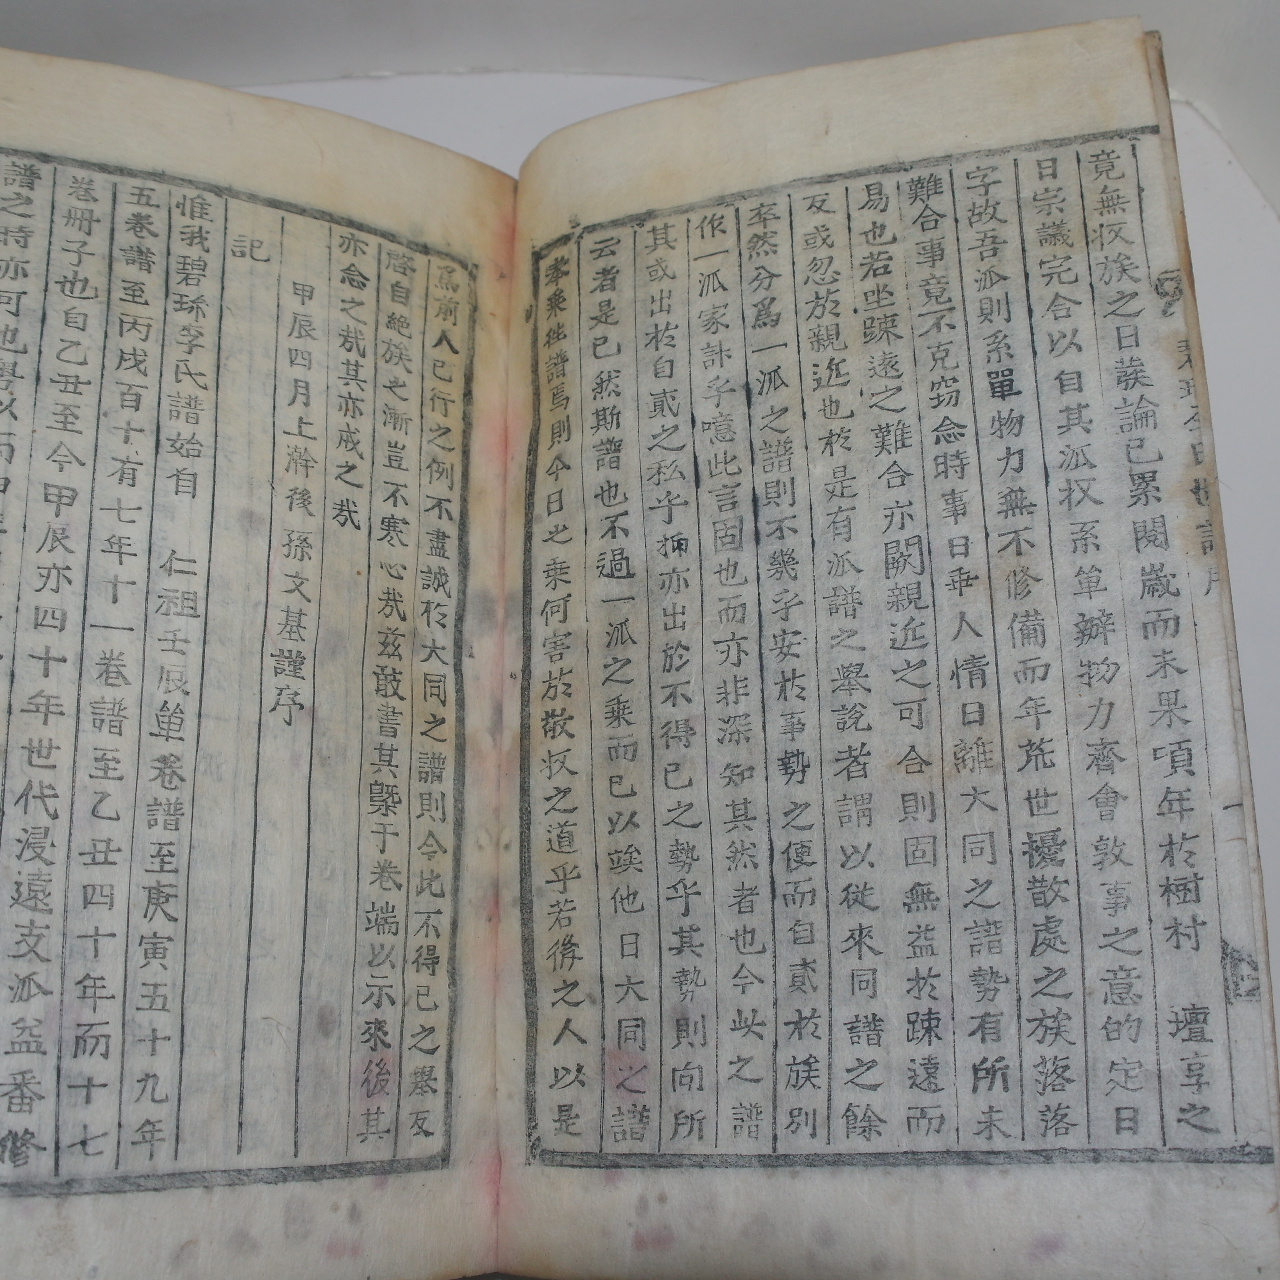 竟無收族之日蕺論已累閱歲而未果頃年於樹村 壇享之
日宗議完合以自其派收系單辦物力齊會敦事之意的定日
字故吾派則系單物力無不修備而年荒世擾散處之族落落
難合事竟不克窃念時事日乖人情日離大同之譜勢有所未
易也若坐踈遠之難合亦闕親近之可合則固無益於踈遠而
反或忽於親近也於是有派譜之擧說者謂以從來同譜之餘
卒然分爲一派之譜則不幾乎安於事勢之便而自貳於族別
作一派家計乎噫此言固也而亦非深知其然者也今此之譜
其或出於自貳之私乎抑亦出於不得已之勢乎其勢則向所
云者是已然斯譜也不過一派之乘而已以竢他日大同之譜
乘徃譜焉則今日之乘何害於散收之道乎若後之人以是
爲前人已行之例不盡誠於大同之譜則今此不得已之擧反
啓自絶族之漸豈不寒心㢤玆敢書其槩于卷端以示來後其
亦念之㢤其亦戒之㢤
甲辰四月上澣後孫文基謹序
記
惟我碧珎李氏譜始自 仁祖壬辰單卷譜至庚寅五十九年
五卷譜至丙戌百十有七年十一卷譜至乙丑四十年而十七
卷冊子也自乙丑至今甲辰亦四十年世代浸遠支派益番修
譜之時亦可也